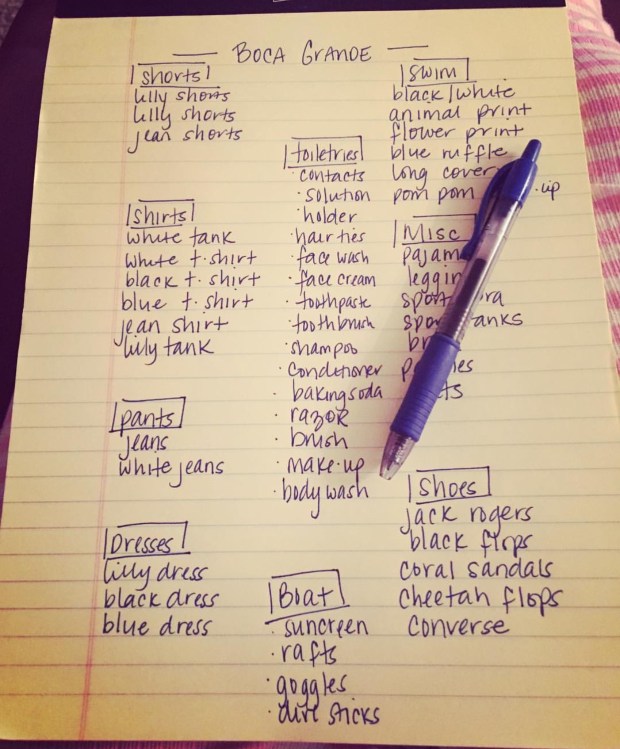 BOCA GRANDE
shorts
lilly shorts
lilly shorts
jean shorts
Shirts
white tank
white t-shirt
black t-shirt
blue t-shirt
jean shirt
lilly tank
pants
jeans
white jeans
Dresses
lilly dress
black dress
blue dress
toiletries
· contacts
· solution
· holder
· hair ties
· face wash
· face cream
· toothpaste
· toothbrush
· shampoo
· conditioner
· baking soda
· razor
· brush
· make-up
· body wash
Boat
· suncreen
· rafts
· goggles
· dive sticks
Swim
black/white
animal print
flower print
blue ruffle
long cover
pom pom
Misc
shoes
jack rogers
black flops
coral sandals
cheetah flops
converse